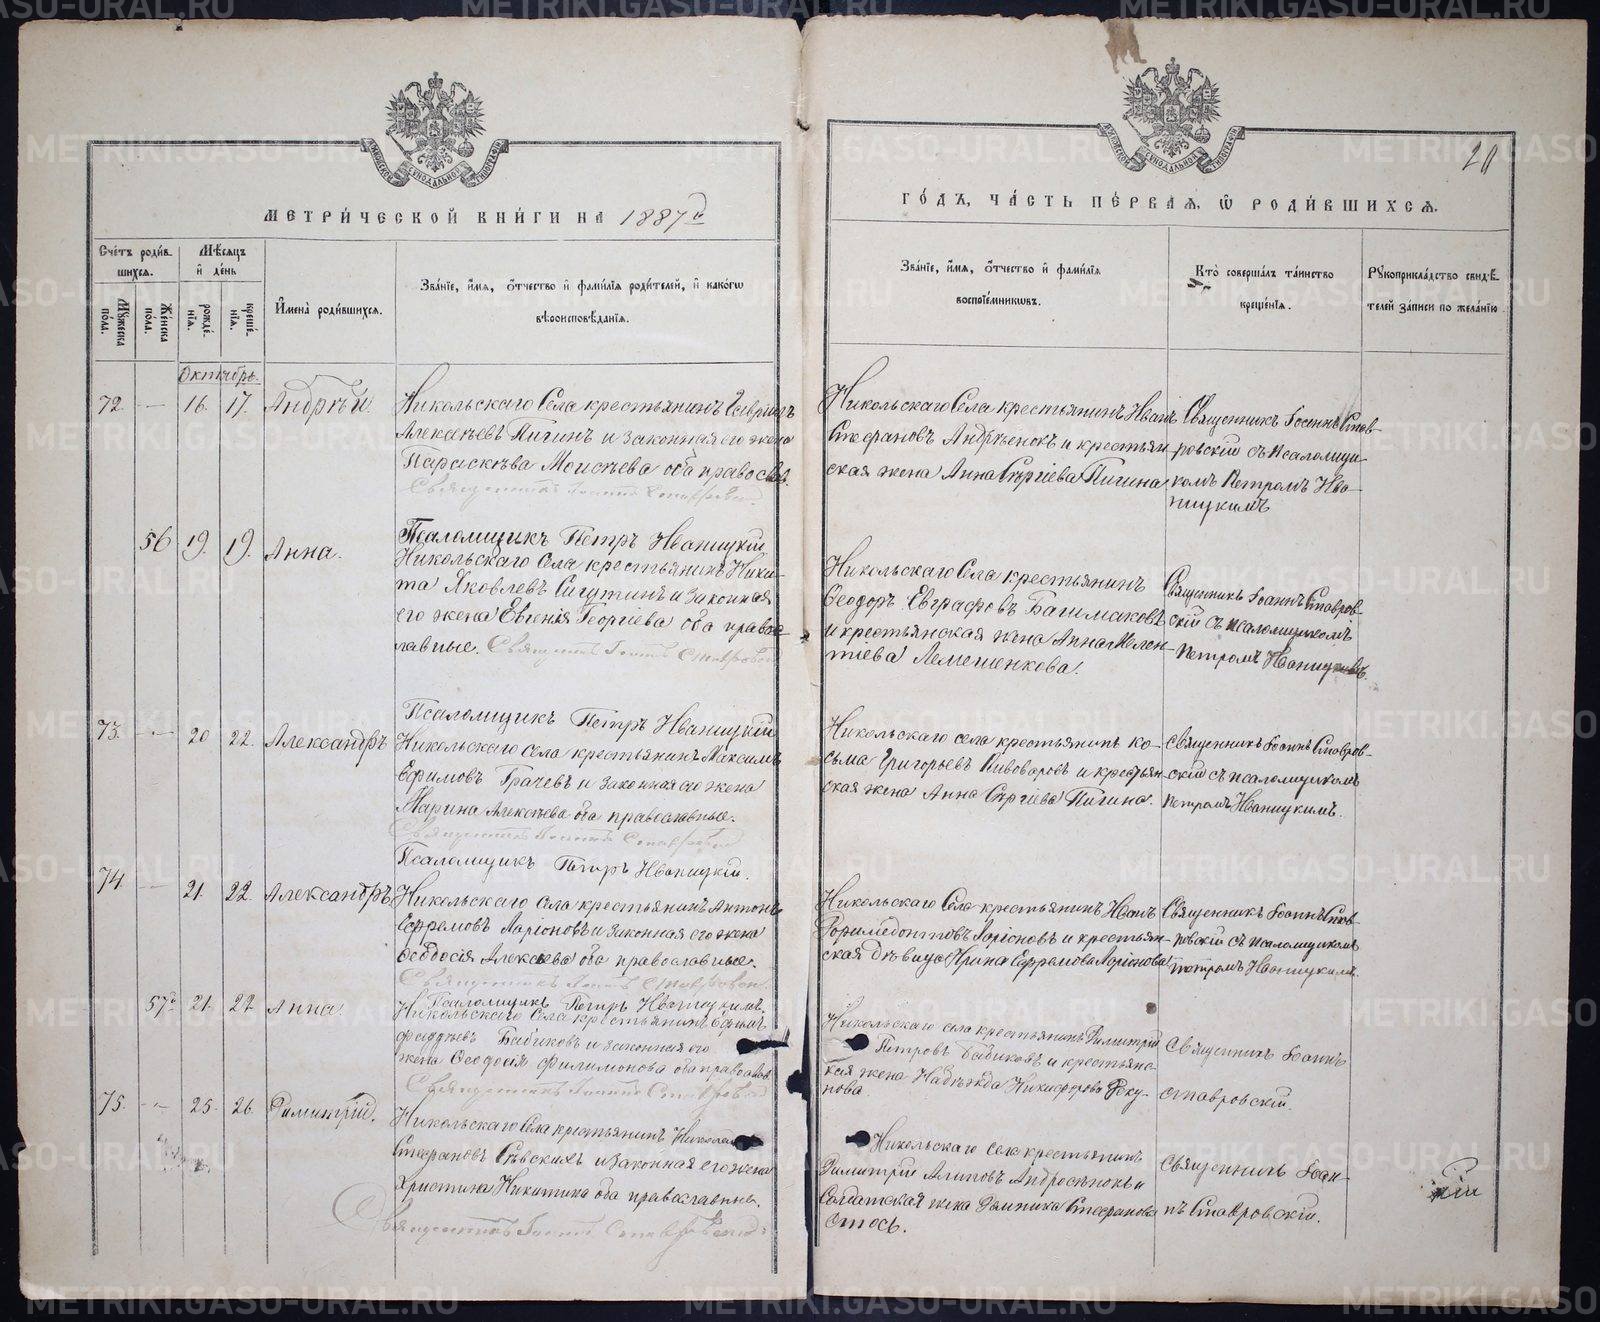 МЕТРИ́ЧЕСКОЙ КНИ́ГИ НА 1887й
ГО́ДЪ, ЧА́СТЬ ПЕ́РВАЯ, Ѿ РОДИ́ВШИХСЯ.
20
Сче́тъ роди́в-
шихся.
Мꙋ́жеска
по́ла.
Же́нска
пола.
Мѣ́сяцъ
и҆ де́нь
рожде́-
нїя.
креще́-
нїя.
И҆мена̀ роди́вшихся.
Зва́нїе, и҆́мя, о҆́тчество и҆ фами́лїя роди́телей, и҆ како́гѡ
вѣроисповѣ́данїя.
Зва́нїе, и҆́мя, о҆́тчество и҆ фами́лїя
воспрїе́мникѡвъ.
Кто̀ соверша́лъ та́инство
креще́нїя.
Рꙋкоприкла́дство свидѣ́-
телей за́писи по жела́нїю.
Октябрь.
72. — 16. 17. Андрѣй.
Никольскаго Села крестьянинъ Гавріилъ
Алексѣевъ Пигинъ и законная его жена
Параскѣва Моисѣева оба правосл.
Священникъ Іоаннъ Ставровскій
Псаломщикъ Петръ Иваницкій
Никольскаго Села крестьянинъ Иванъ
Стефановъ Андрѣенокъ и крестьян-
ская жена Анна Сергіева Пигина
Священникъ Іоаннъ Став-
ровскій съ псаломщи-
комъ Петромъ Ива-
ницкимъ
56 19. 19. Анна.
Никольскаго Села крестьянинъ Ники-
та Яковлевъ Сигутинъ и законная
его жена Евгенія Георгіева оба право-
славные. Священникъ Іоаннъ Ставровскій
Псаломщикъ Петръ Иваницкій
Никольскаго Села крестьянинъ
Ѳеодоръ Евграфовъ Башмаковъ
и крестьянская жена Анна Мелен-
тіева Лемешенкова.
Священникъ Іоаннъ Ставров-
скій съ псаломщикомъ
Петромъ Иваницкимъ.
73. — 20 22. Александръ
Никольскаго села крестьянинъ Максимъ
Ефимовъ Грачевъ и законная его жена
Марина Алексѣева оба православные.
Священникъ Іоаннъ Ставровскій
Псаломщикъ Петръ Иваницкій.
Никольскаго села крестьянинъ Ко-
сьма Григорьевъ Пивоваровъ и крестьян-
ская жена Анна Сергіева Пигина.
Священникъ Іоаннъ Ставров-
скій съ псаломщикомъ
Петромъ Иваницкимъ.
74. — 21. 22. Александръ
Никольскаго Села крестьянинъ Антонъ
Ефремовъ Ларіоновъ и законная его жена
Ѳеодосія Алексѣева оба православные.
Священникъ Іоаннъ Ставровскій
Псаломщикъ Петръ Иваницкимъ.
Никольскаго Села крестьянинъ Иванъ
Ларіоновъ и крестьян-
ская дѣвица Ирина Ефремова Ларіонова
Священникъ Іоаннъ Став-
ровскій съ псаломщикомъ
Петромъ Иваницкимъ.
57й 21. 22. Анна.
Никольскаго Села крестьянинъ Ефимъ
Фаддѣевъ Бабиковъ и законная его
жена Ѳеодосія Филимонова оба православ.
Священникъ Іоаннъ Ставровскій
Никольскаго села крестьянинъ Димитрій
Петровъ Бабиковъ и крестьянс-
кая жена Надѣжда Никифорова
нова.
Священникъ Іоаннъ
Ставровскій.
75. — 25. 26. Димитрій.
Никольскаго Села крестьянинъ Николай
Стефановъ Сѣвскихъ и законная его жена
Христина Никитина оба православные.
Священникъ Іоаннъ Ставровскій
Никольскаго села крестьянинъ
Димитрій Агиповъ Андросѣнокъ и
Солдатская жена Стефанова
Стось.
Священникъ Іоан-
нъ Ставровскій.
METRIKI.GASO-URAL.RU